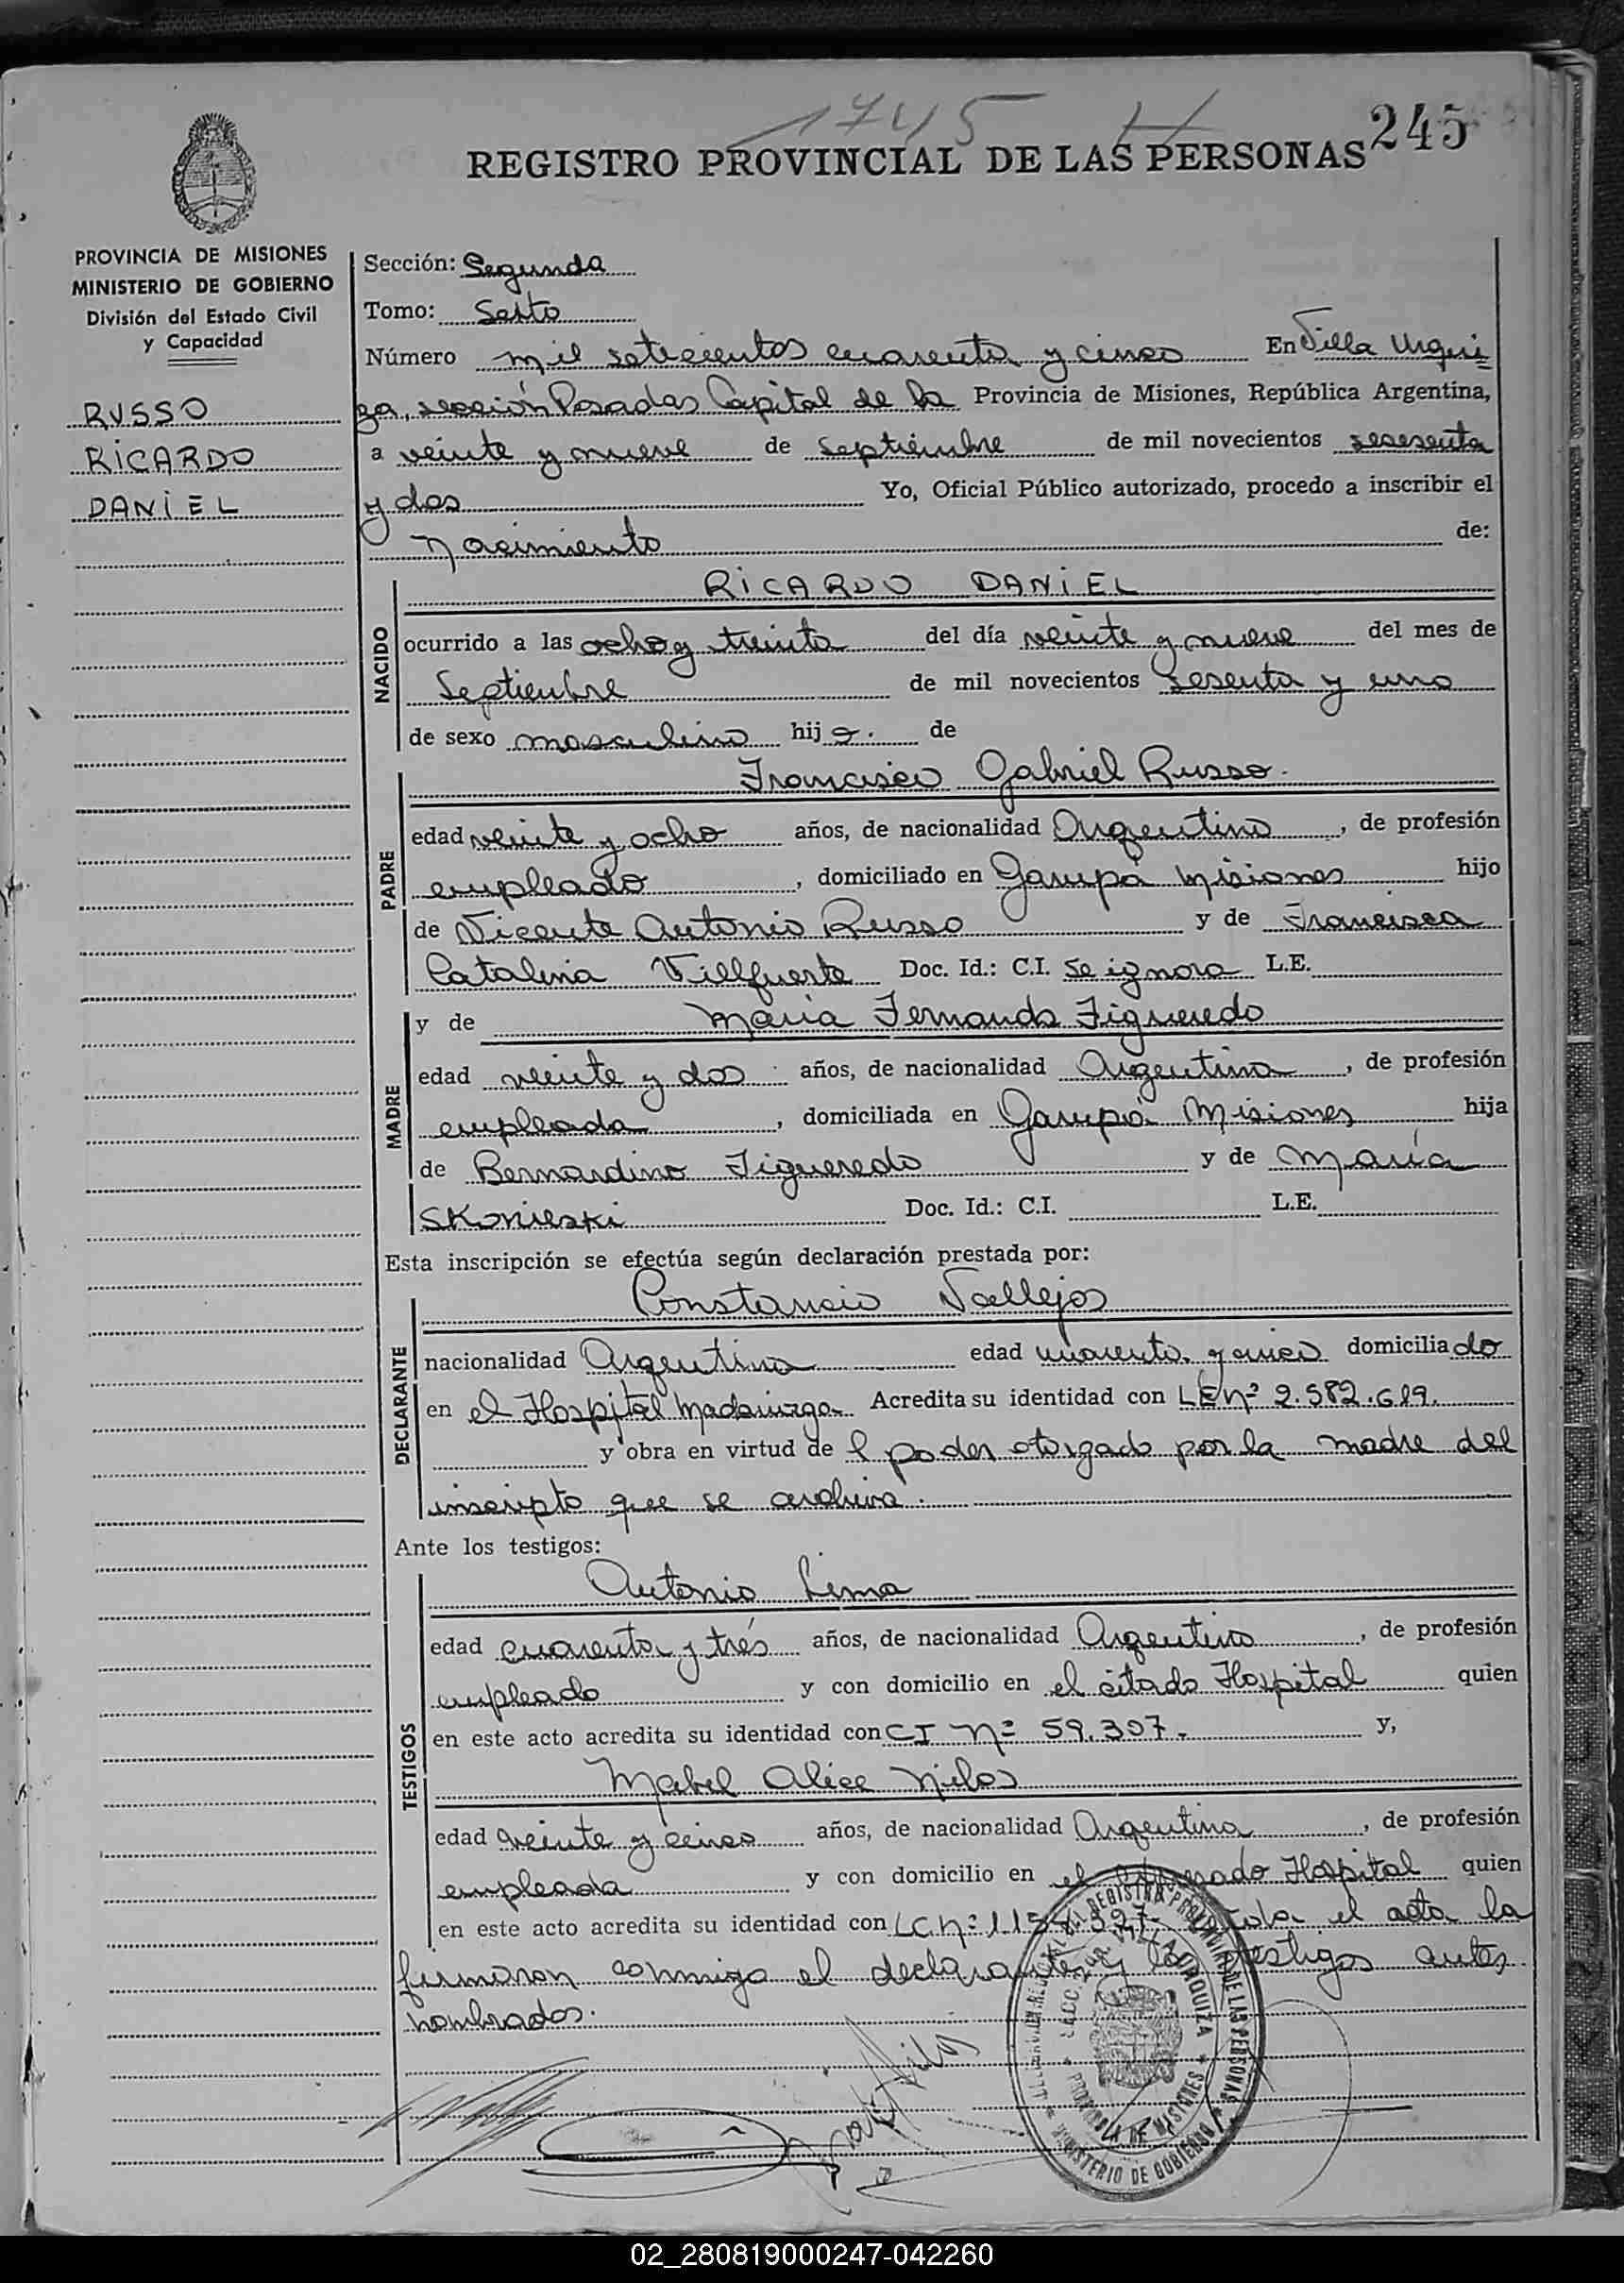 1745 H
245
REGISTRO PROVINCIAL DE LAS PERSONAS
PROVINCIA DE MISIONES
MINISTERIO DE GOBIERNO
División del Estado Civil
y Capacidad
RUSSO
RICARDO
DANIEL
Sección: Segunda
Tomo: Sexto
Número mil setecientos cuarenta y cinco En Villa Urqui
za, sección Posadas Capital de la Provincia de Misiones, República Argentina,
a veinte y nueve de septiembre de mil novecientos sesesenta
y dos Yo, Oficial Público autorizado, procedo a inscribir el
nacimiento de:
NACIDO
RICARDO DANIEL
ocurrido a las ocho y treinta del día veinte y nueve del mes de
Septiembre de mil novecientos sesenta y uno
de sexo masculino hijo. de
PADRE
Francisco Gabriel Russo.
edad veinte y ocho años, de nacionalidad Argentino, de profesión
empleado, domiciliado en Garupá Misiones hijo
de Vicente Antonio Russo y de Francisca
Catalina Villfuerte Doc. Id.: C.I. se ignora L.E.
MADRE
y de María Fernanda Figueredo
edad veinte y dos años, de nacionalidad Argentina, de profesión
empleada, domiciliada en Garupá Misiones hija
de Bernardino Figueredo y de María
Skonieski Doc. Id.: C.I. L.E.
Esta inscripción se efectúa según declaración prestada por:
DECLARANTE
Constancio Vallejos
nacionalidad Argentino edad cuarenta y cinco domiciliado
en el Hospital Madariaga Acredita su identidad con LE nº 2.582.619.
y obra en virtud de l poder otorgado por la madre del
inscripto que se archiva.
Ante los testigos:
TESTIGOS
Antonio Lima
edad cuarenta y trés años, de nacionalidad Argentino, de profesión
empleado y con domicilio en el citado Hospital quien
en este acto acredita su identidad con CI Nº 59.307.- y,
Mabel Alice Nilos
edad veinte y cinco años, de nacionalidad Argentina, de profesión
empleada y con domicilio en el Hospital quien
en este acto acredita su identidad con LC nº el acta la
firmaron conmigo el declarante y los testigos antes
nombrados.
REGISTRO PROVINCIAL DE LAS PERSONAS
VILLA URQUIZA
PROVINCIA DE MISIONES
MINISTERIO DE GOBIERNO
02_280819000247-042260